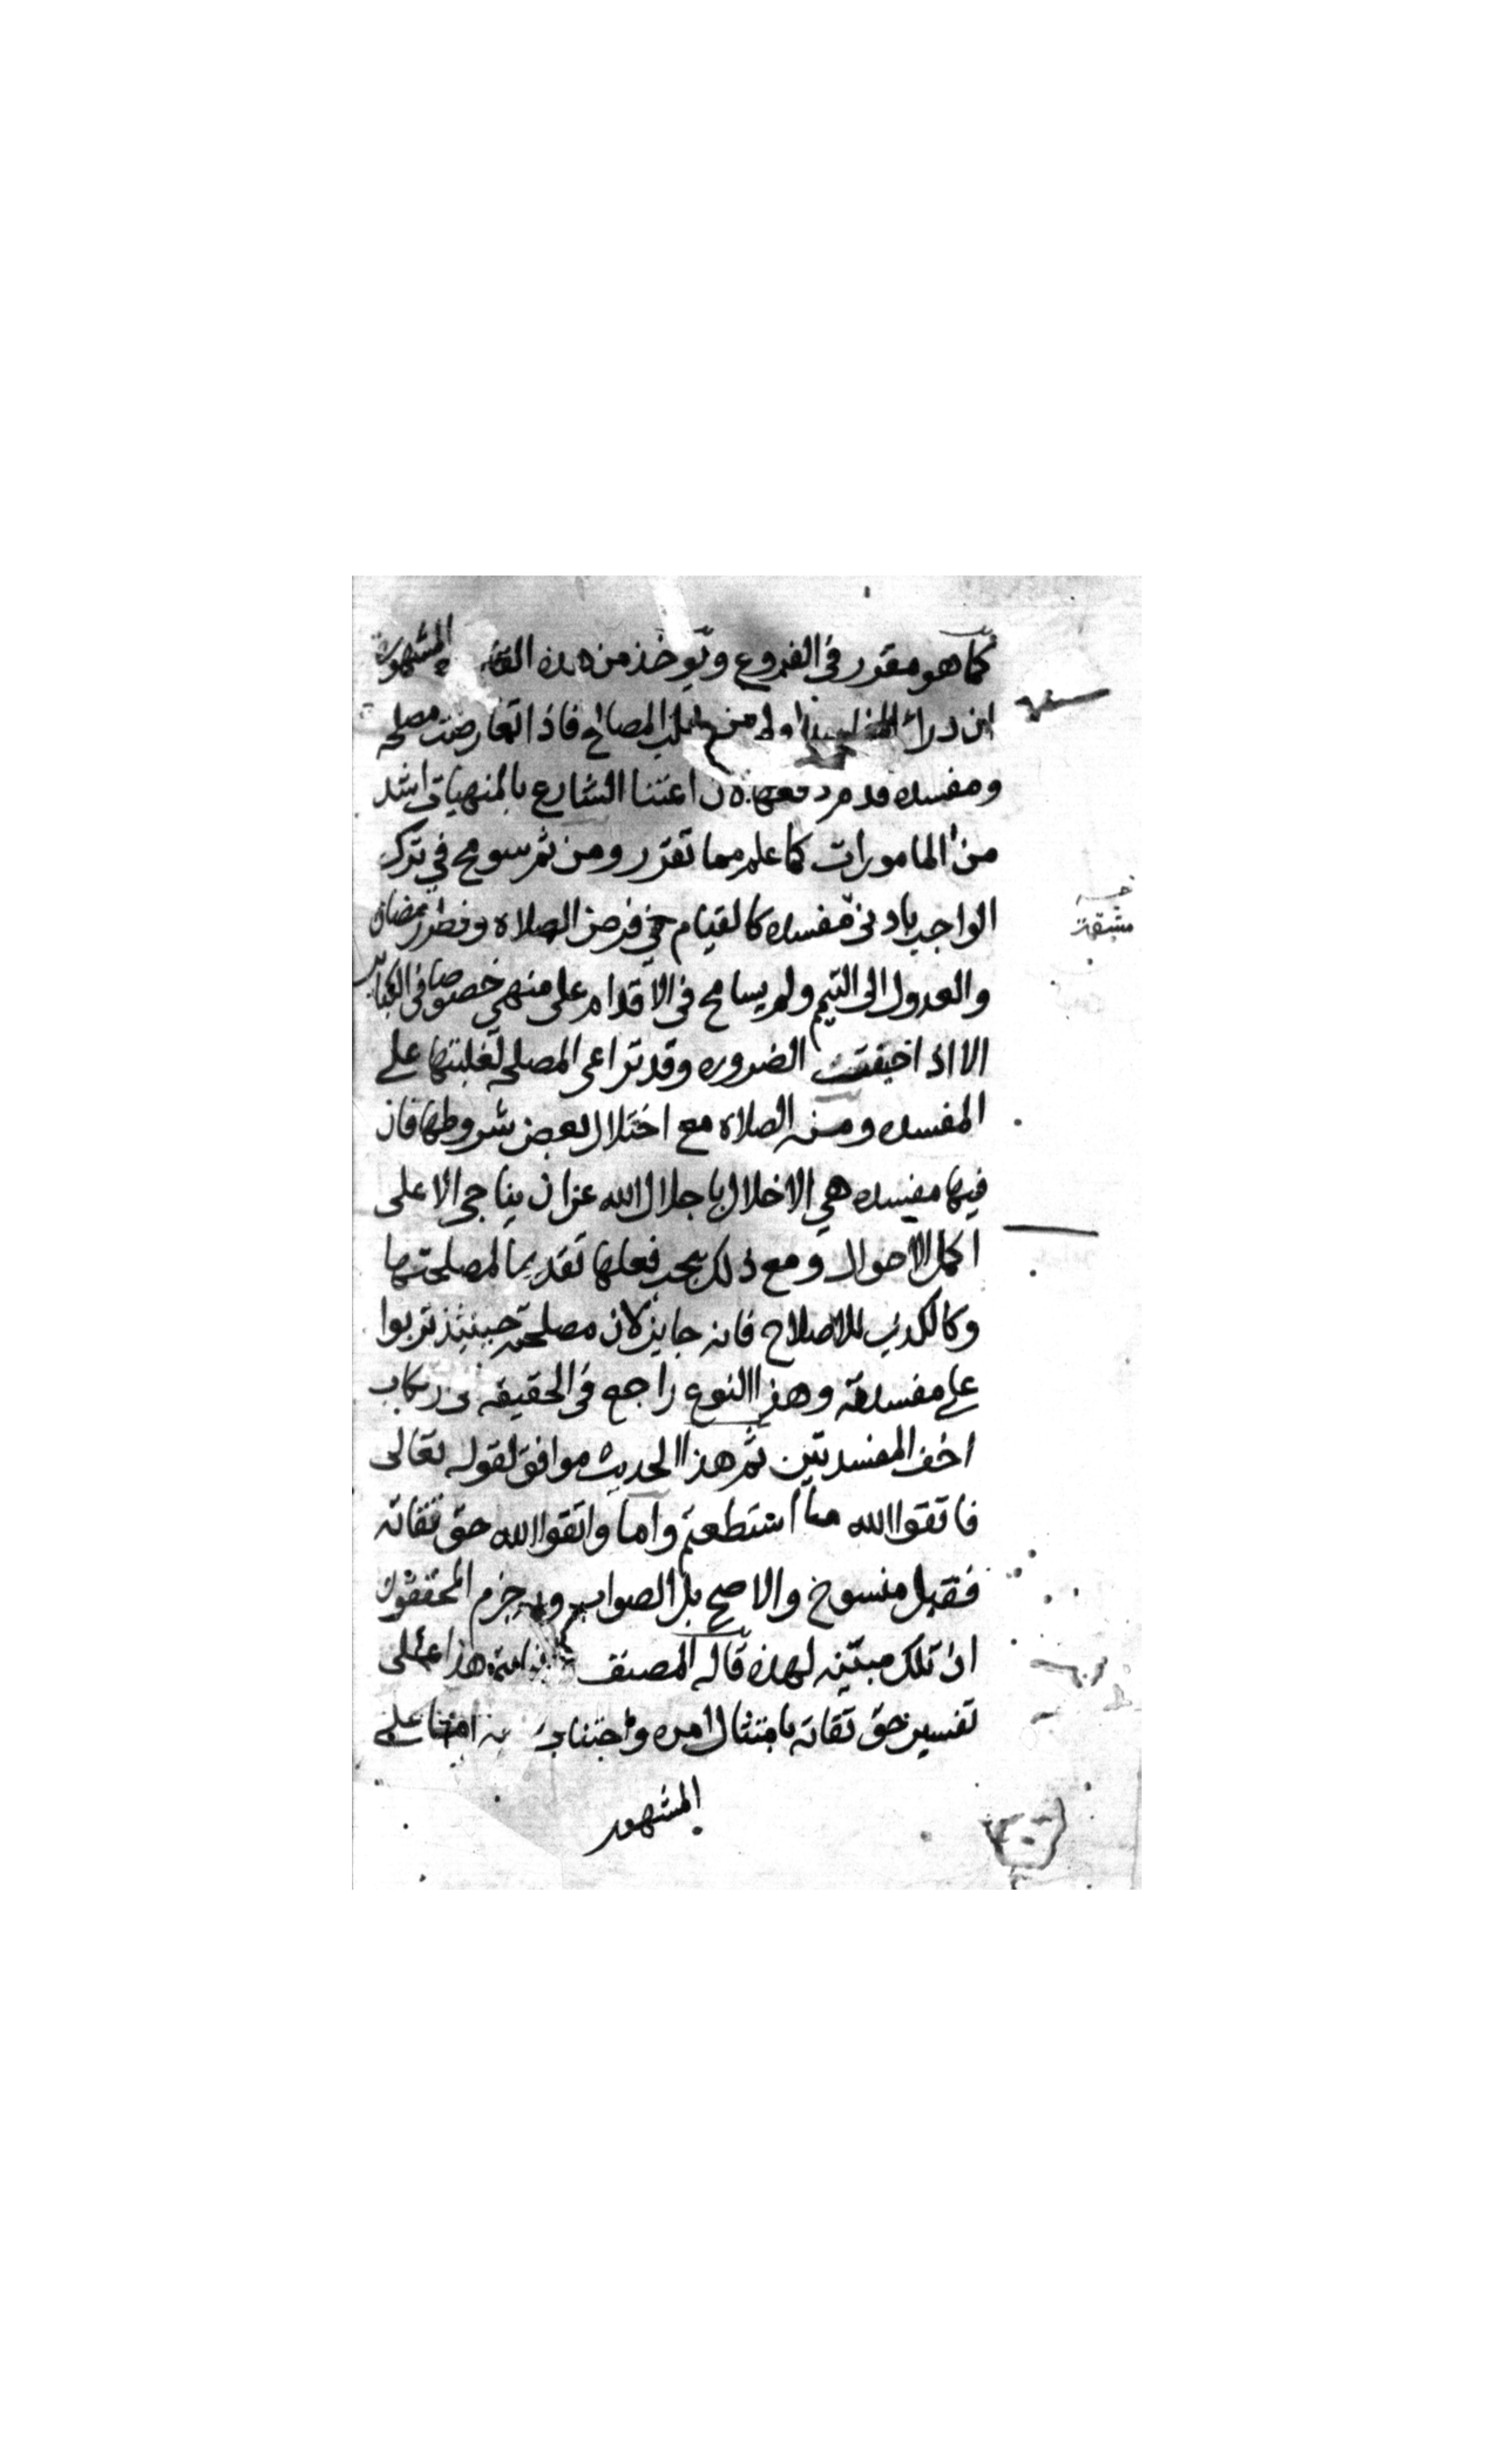 كما هو مقرر في الفروع ويوخذ من هذه المشهورة
ان درا اولى من جلب المصالح فاذا تعارضت مصلحه
ومفسده قدم دفعها اعتنا الشارع بالمنهيات اشد
من المامورات كما علم مما تقرر ومن ثم سومح في ترك
الواجب بادنى مفسده كالقيام في فرض الصلاه وفطر رمضان
مشقة
والعدول الى التيمم ولم يسامح في الاقدام على منهي خصوصا في الكباير
الا اذا الضروره وقد تراعى المصلحه لغلبتها على
المفسده ومنه الصلاه مع اختلال بعض شروطها فان
فيها مفسده هي الاخلال باجلال الله عز ان يناجى الا على
اكمل الاحوال ومع ذلك يجب فعلها تقديما لمصلحتها
وكالكذب للاصلاح فانه جايز لان مصلحته حينيذ تربوا
على مفسدته وهذا النوع راجع في الحقيقه
اخف المفسدتين ثم هذا الحديث موافق لقوله تعالى
فاتقوا الله ما استطعتم واما واتقوا الله حق تقاته
فقيل منسوخ والاصح بل الصواب وبه جزم المحققون
ان تلك مبينه لهذه قاله المصنف هذا على
تفسير حق تقاته بامتثال امره واجتناب على
المشهور